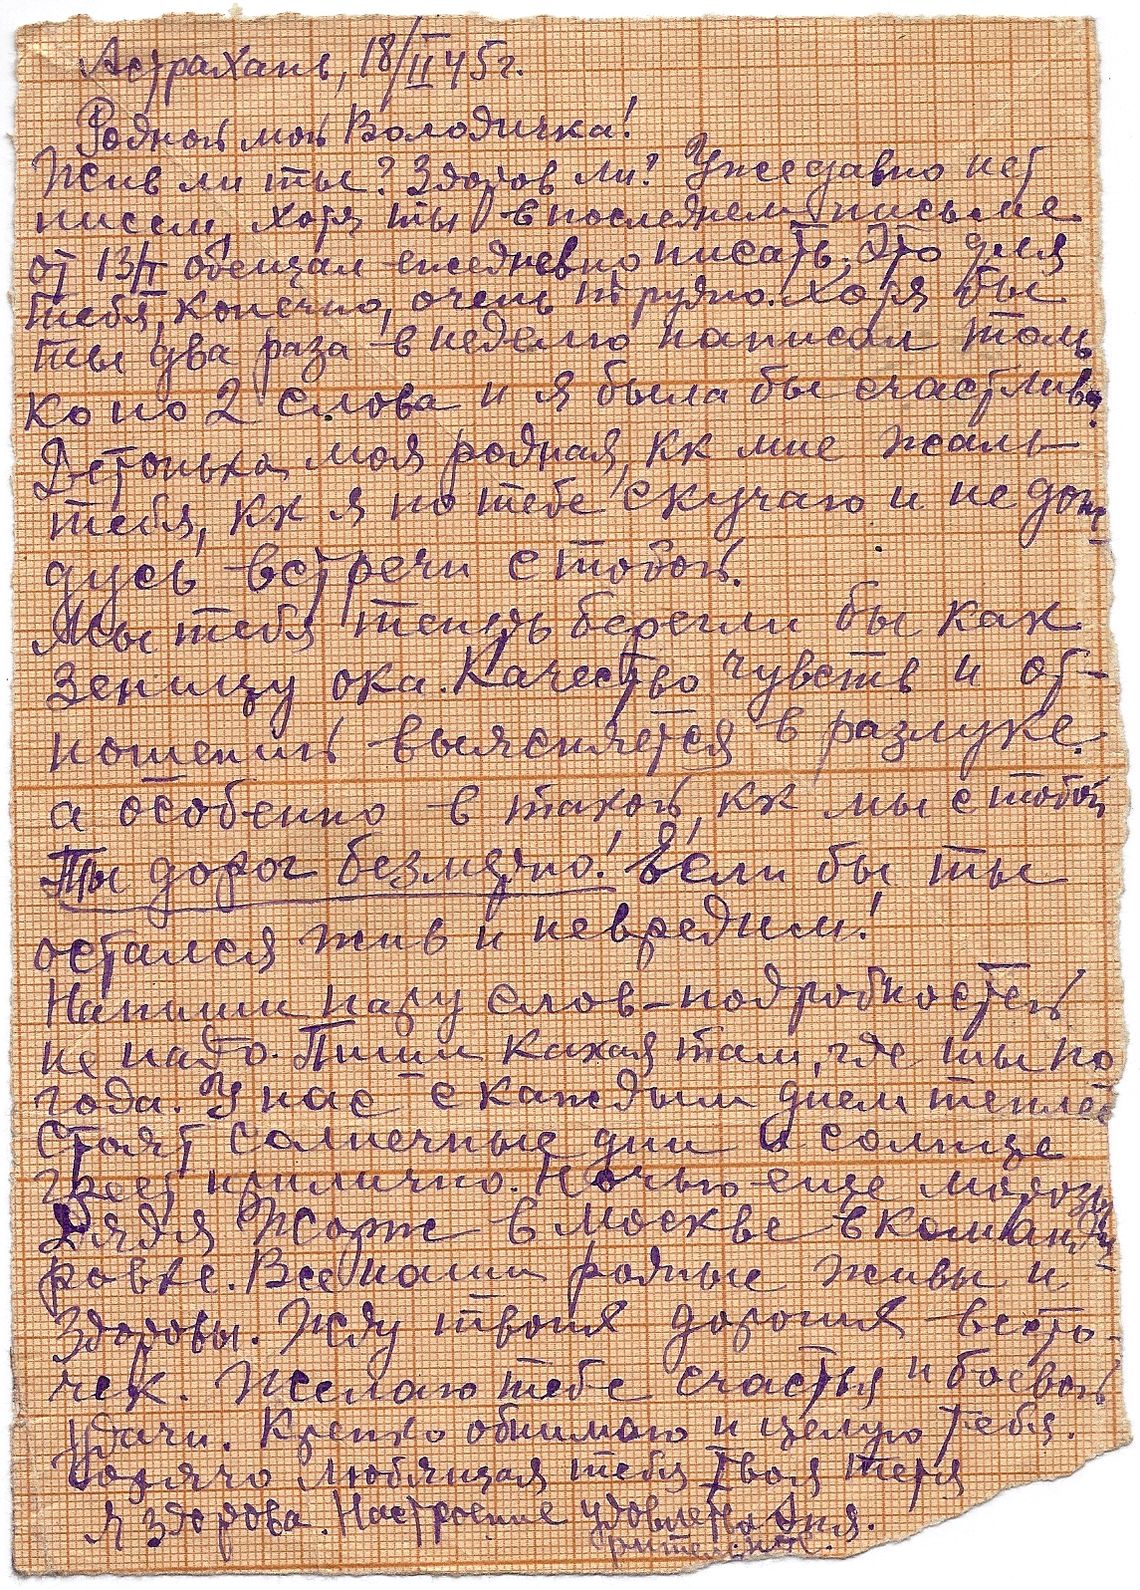 Астрахань, 18/II 45 г.
Родной мой Володичка!
Жив ли ты? Здоров ли? Уже давно нет
писем, хотя ты в последнем письме
от 13/I обещал ежедневно писать. Это для
тебя, конечно, очень трудно. Хотя бы
ты два раза в неделю написал толь
ко по 2 слова и я была бы счастлива.
Детонька моя родная, кк мне жаль
тебя, кк я по тебе скучаю и не дож
дусь встречи с тобой.
Мы тебя теперь берегли бы как
зеницу ока. Качество чувств и от-
ношений выясняется в разлуке,
а особенно в такой, кк мы с тобой
Ты дорог безмерно! О, если бы ты
остался жив и невредим!
Напиши пару слов – подробностей
не надо. Пиши какая там, где ты по
года. У нас с каждым днем теплее
Стоят солнечные дни и солнце
греет прилично. Ночью еще морозы
Дядя Жорж в Москве в команди
ровке. Все наши родные живы и
здоровы. Жду твоих дорогих весто-
чек. Желаю тебе счастья и боевой
удачи. Крепко обнимаю и целую тебя.
Горячо любящая тебя твоя тетя
Я здорова. Настроение удовлетво Аня.
рительное.